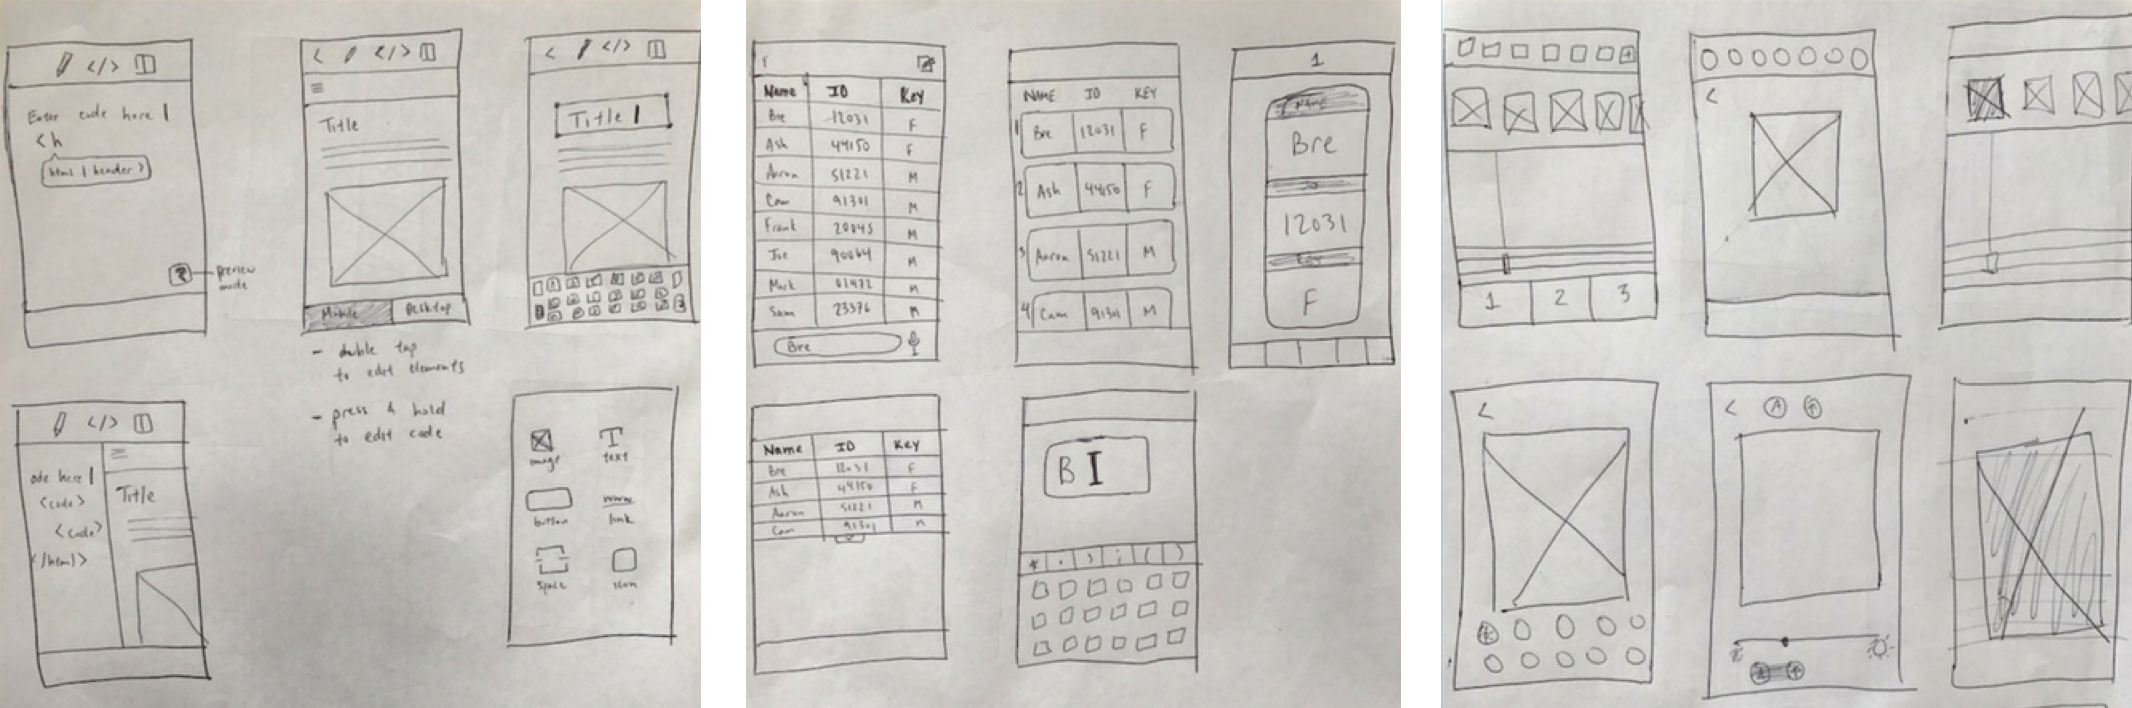 </>
Enter code here |
<h
html | header >
Preview
mode
< </>
Title
Mobile Desktop
- double tap
to edit elements
- press & hold
to edit code
< </>
Title |
</>
ode here |
<code>
<code>
</html>
Title
image
text
button
link
space
icon
Name ID Key
Bre 12031 F
Ash 44150 F
Aaron 51221 M
Cam 91301 M
Frank 20045 M
Joe 90064 M
Mark 01472 M
Sam 23376 M
Bre
NAME ID KEY
1 Bre 12031 F
2 Ash 44150 F
3 Aaron 51221 M
4 Cam 91301 M
1
NAME
Bre
ID
12031
KEY
F
Name ID Key
Bre 12031 F
Ash 44150 F
Aaron 51221 M
Cam 91301 M
B I
* . ) ; ( )
1 2 3
<
<
< A